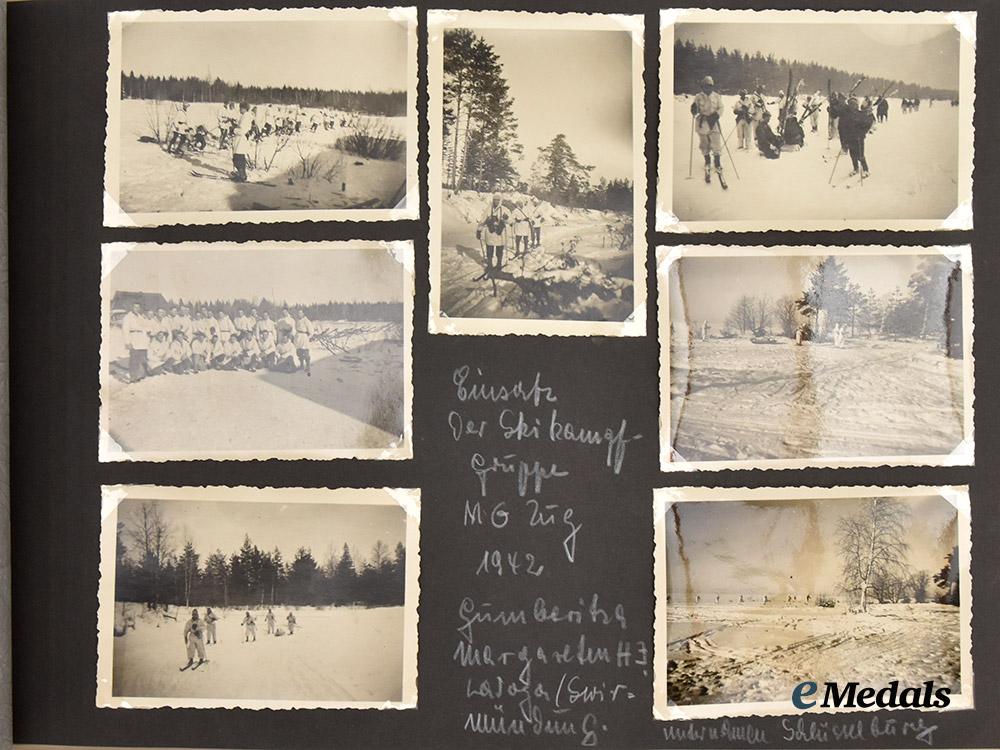 Einsatz
der Skikampf-
gruppe
MG Zug
1942
Gumberitza
Margareten H3
Ladoga / Swir-
mündung.
Unternehmen Schlüsselburg
eMedals